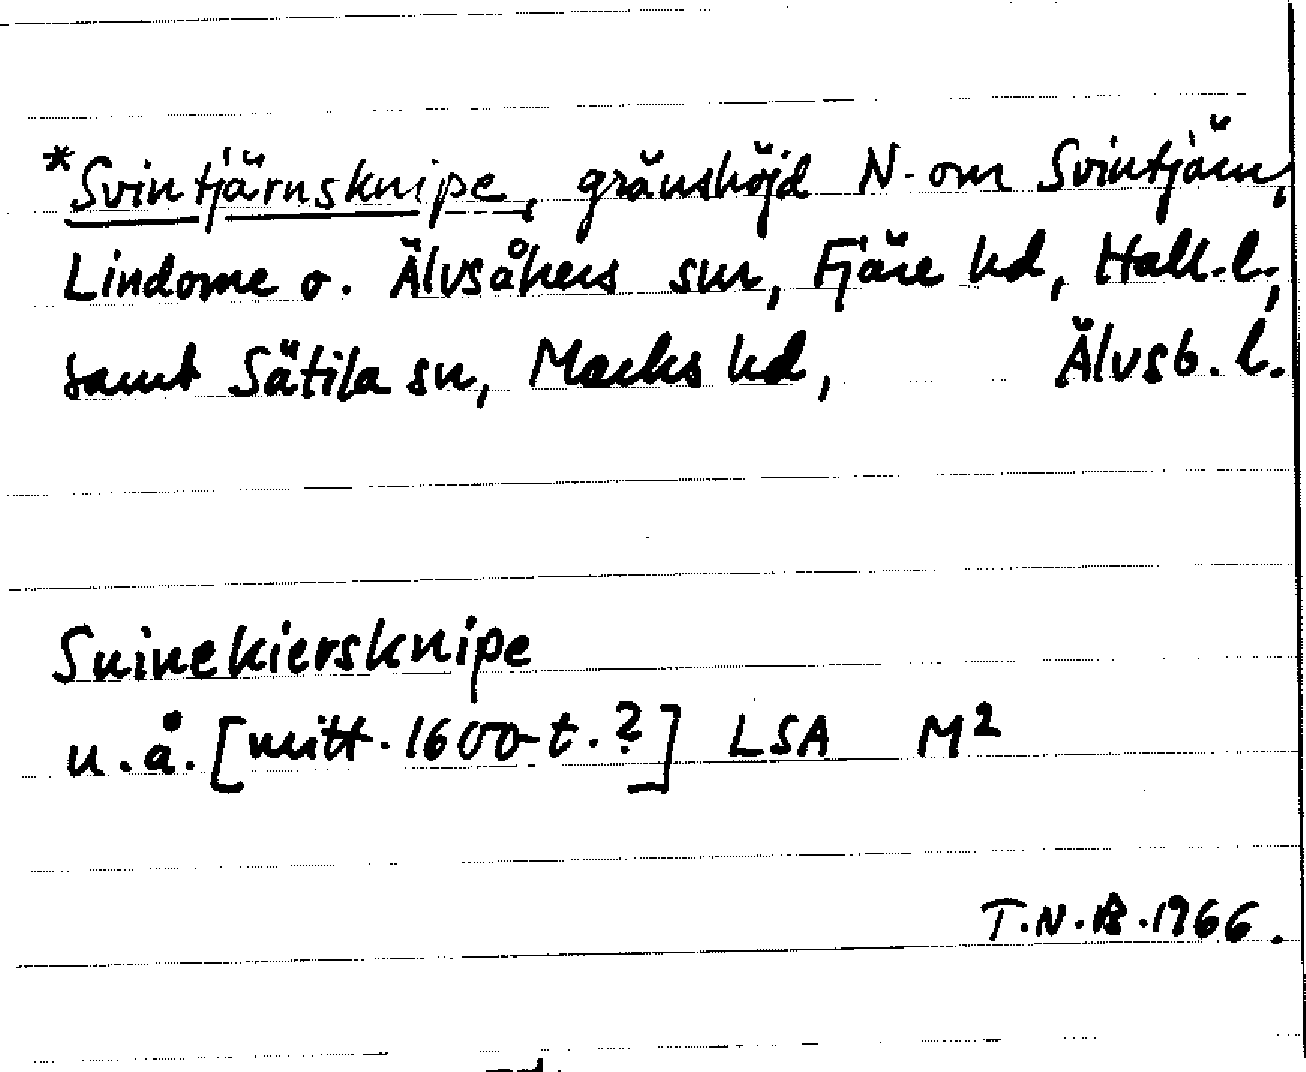 *Svintjärnsknipe, gränshöjd N. om Svintjärn,
Lindome o. Älvsåkers snr, Fjäre hd, Hall. l.,
samt Sätila sn, Marks hd, Älvsb. l.
Suinekiersknipe
u.å. [mitt. 1600-t.?] LSA M2
T.N.B. 1966.